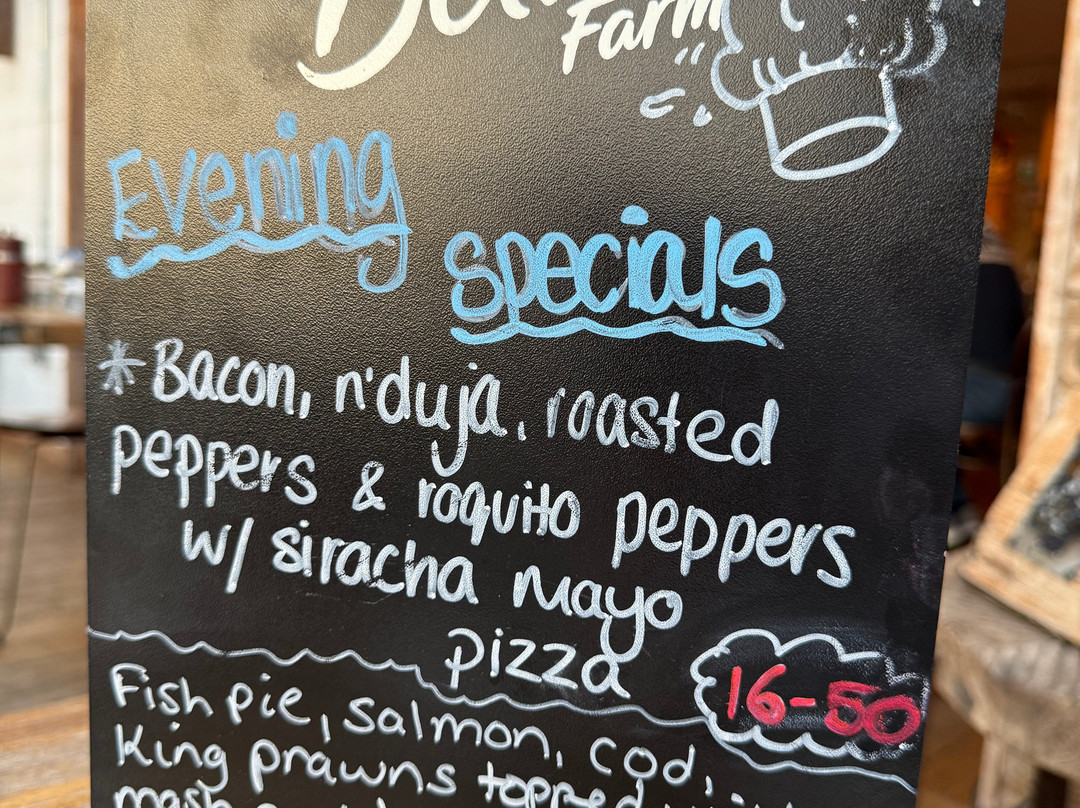 Farm
Evening
Specials
*Bacon, n'duja, roasted
peppers & roquito peppers
w/ siracha mayo
pizza
16-50
Fish pie, salmon, cod,
King prawns topped
mash